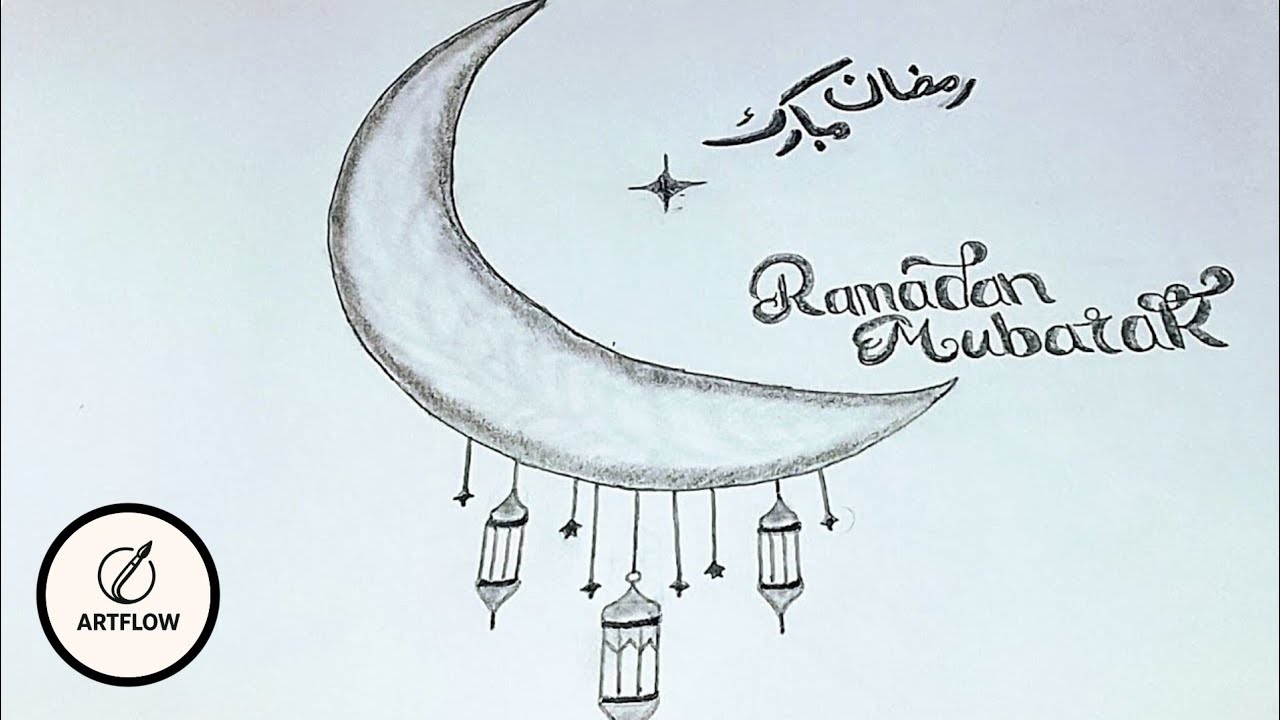 رمضان
مبارك
Ramadan
Mubarak
ARTFLOW